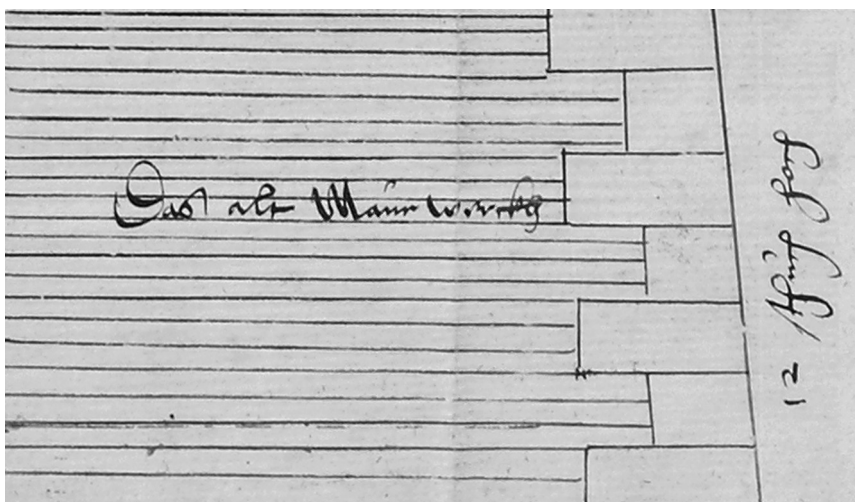 Das alt Maurwerckh
12 schuch hoch